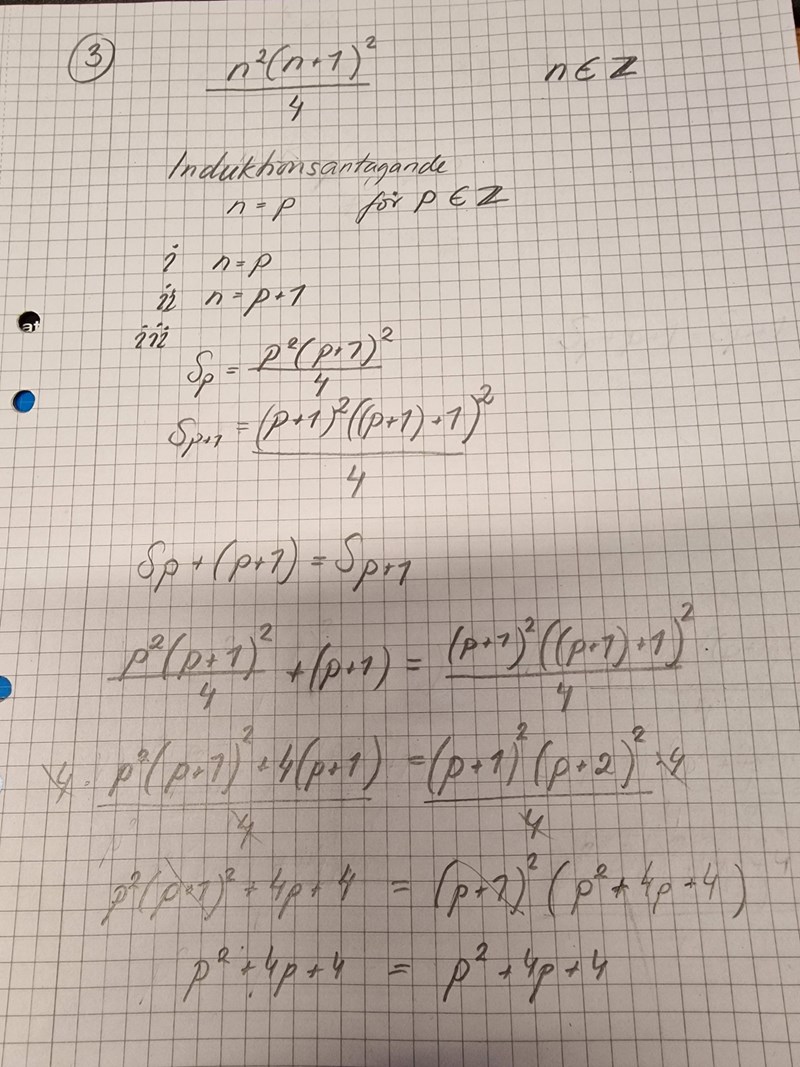 ③ n²(n+1)²/4 n ∈ ℤ
Induktionsantagande
n = p för p ∈ ℤ
i n = p
ii n = p+1
iii
Sp = p²(p+1)²/4
Sp+1 = (p+1)²((p+1)+1)²/4
Sp + (p+1) = Sp+1
p²(p+1)²/4 + (p+1) = (p+1)²((p+1)+1)²/4
4 · p²(p+1)² + 4(p+1)/4 = (p+1)²(p+2)²/4 · 4
p²(p+1)² + 4p + 4 = (p+1)²(p² + 4p + 4)
p² + 4p + 4 = p² + 4p + 4